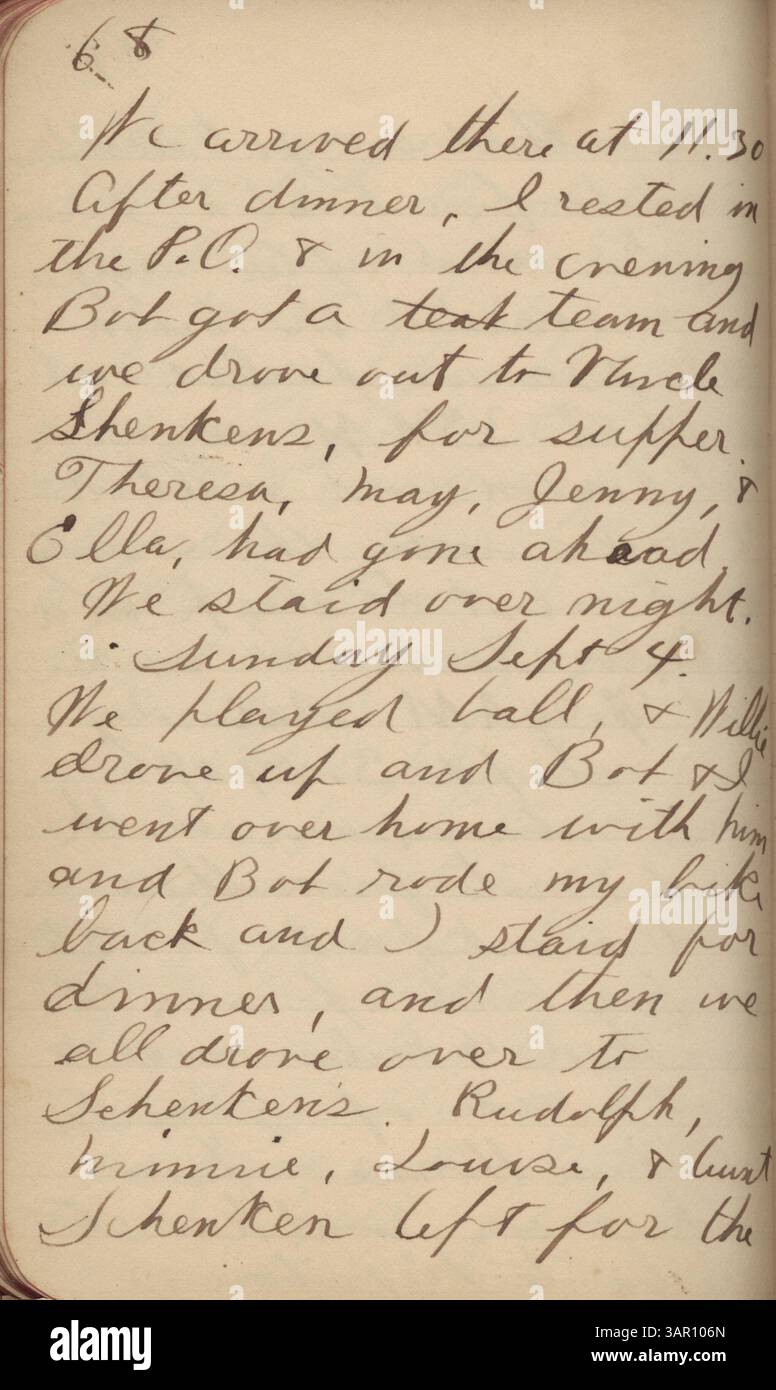 68
We arrived there at 11.30
After dinner, I rested in
the P.O. & in the evening
Bob got a teak team and
we drove out to Uncle
Shenkens, for supper.
Theresa, May, Jenny, &
Ella, had gone ahead.
We staid over night.
Sunday Sept 4.
We played ball, & Willie
drove up and Bob & I
went over home with him
and Bob rode my bike
back and I staid for
dinner, and then we
all drove over to
Schenken's. Rudolph,
Minnie, Louise, & Aunt
Schenken left for the
alamy
alamy
alamy
alamy
alamy
Image ID: 3AR106N
www.alamy.com